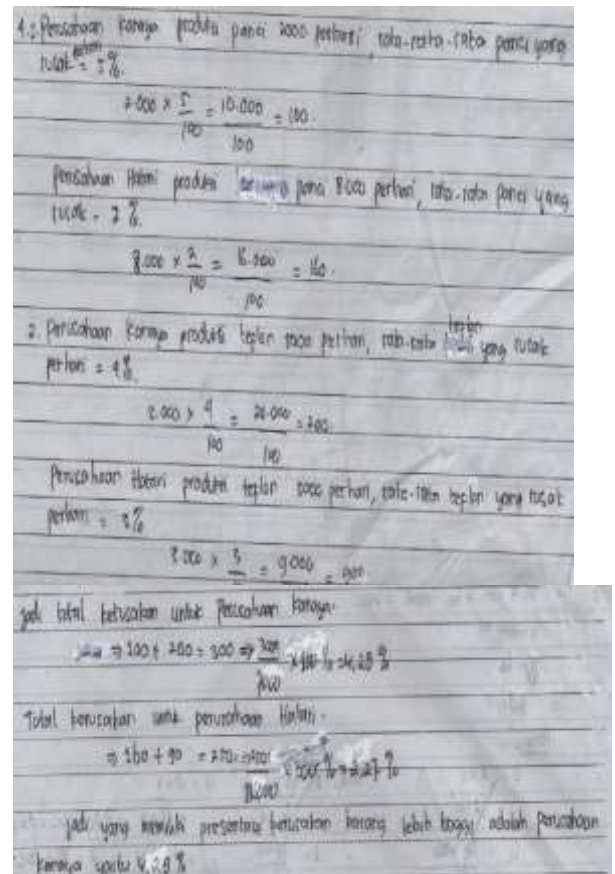 4. Perusahaan Karaya produksi panci 2000 perhari, rata-rata panci yang
rusak perhari = 5%.
2.000 × 5/100 = 10.000/100 = 100.
Perusahaan Hatori produksi panci 8.000 perhari, rata-rata panci yang
rusak = 2%.
8.000 × 2/100 = 16.000/100 = 160.
2. Perusahaan Karaya produksi teplon perhari, rata-rata teplon yang rusak
perhari = 4%.
× 4/100 = 20.000/100 = 200.
Perusahaan Hatori produksi teplon perhari, rata-rata teplon yang rusak
perhari = 3%
3.000 × 3 = 9000 =
jadi total kerusakan untuk Perusahaan Karaya.
⇒ 100 + 200 = 300 ⇒ 300/7000 × 100 % = 4,29 %
Total kerusakan untuk perusahaan Hatori.
⇒ 160 + 90 = % = 2,27 %
jadi yang memiliki presentase kerusakan barang lebih tinggi adalah perusahaan
Karaya yaitu 4,29 %